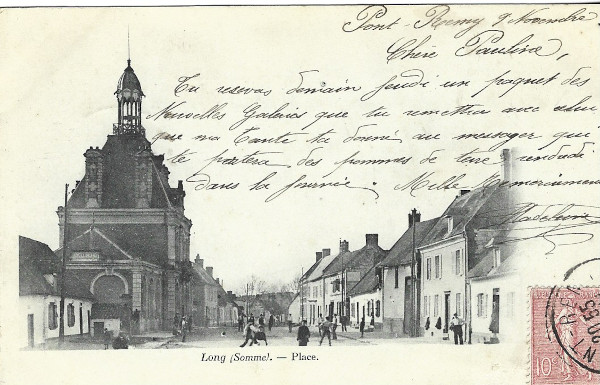 Pont-Remy 9 Novembre
Chère Pauline,
Tu recevras demain jeudi un paquet des
Nouvelles Galeries que tu remettras avec celui
que ma Tante t'a donné au messager qui
te portera des pommes de terre vendredi
dans la journée. Mille remerciements
Madeleine
Long (Somme). — Place.
10